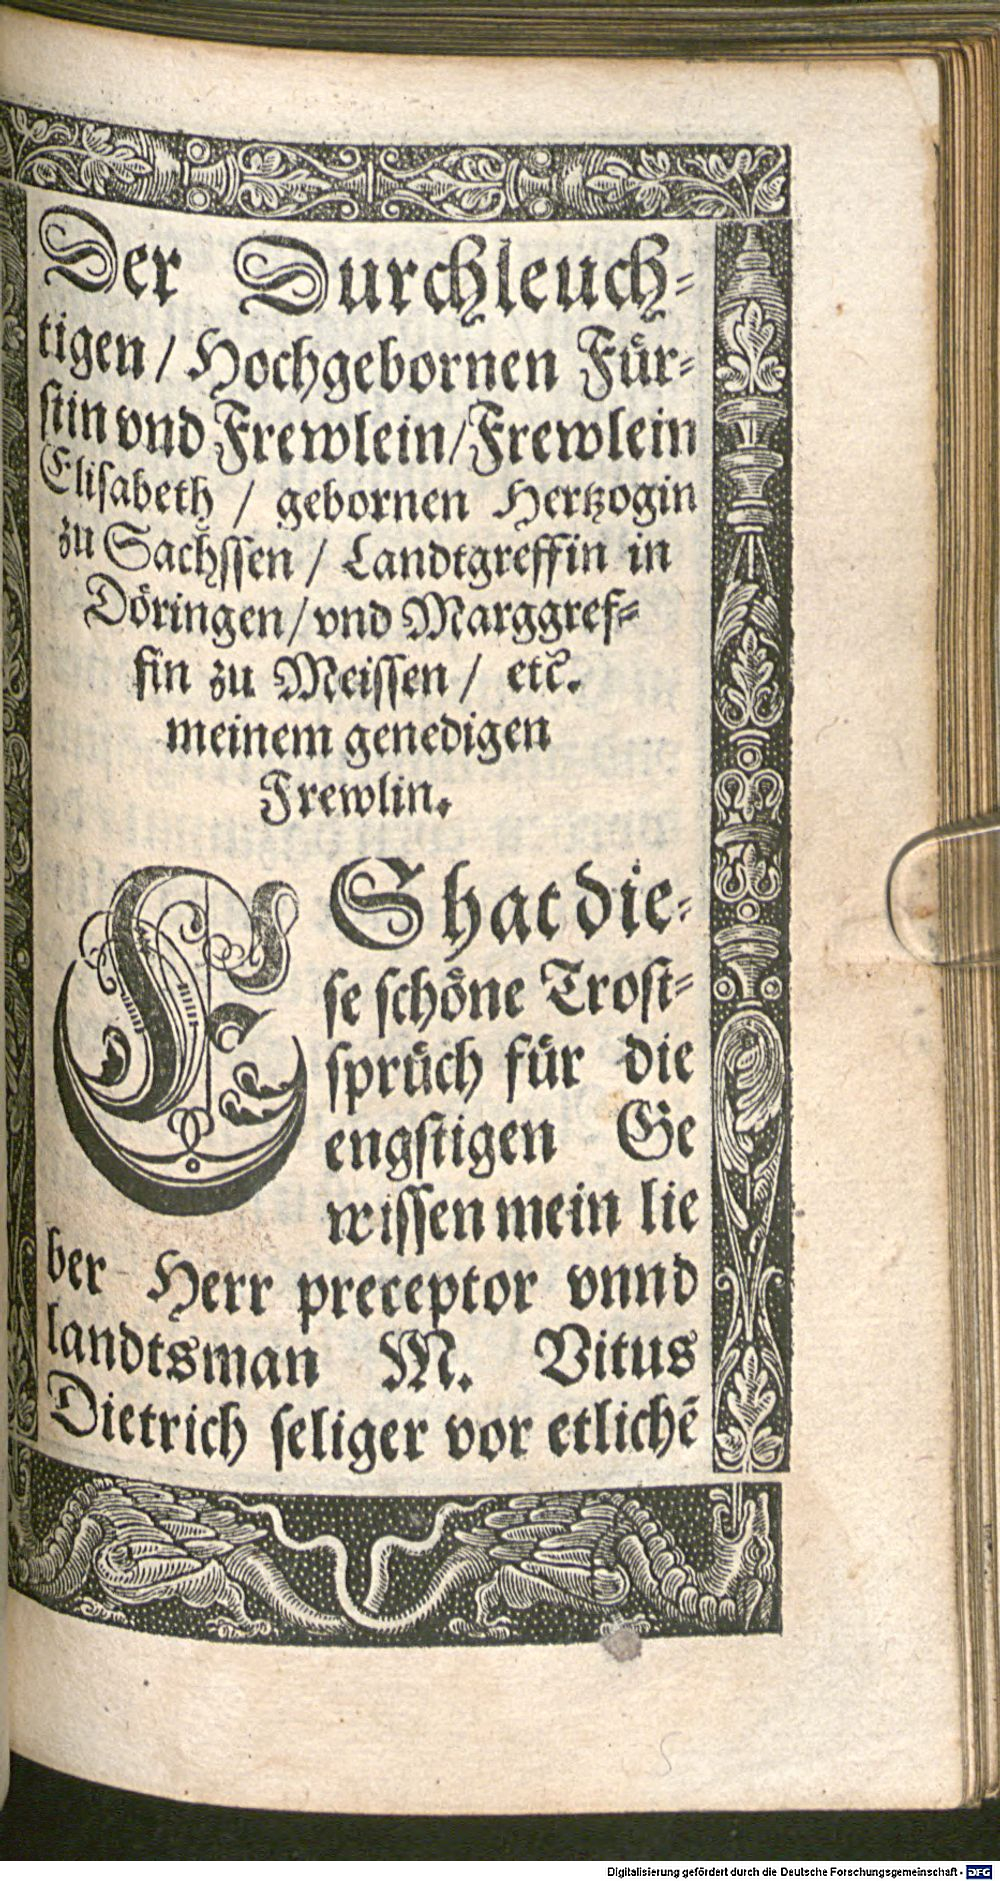 Der Durchleuch⸗
tigen / Hochgebornen Für⸗
stin vnd Frewlein / Frewlein
Elisabeth / gebornen Hertzogin
zu Sachssen / Landtgreffin in
Döringen / vnd Marggref⸗
fin zu Meissen / etc.
meinem genedigen
Frewlin.
ES hat die⸗
se schöne Trost⸗
sprüch für die
engstigen Ge
wissen mein lie
ber Herr preceptor vnnd
landtsman M. Vitus
Dietrich seliger vor etlichē
Digitalisierung gefördert durch die Deutsche Forschungsgemeinschaft - DFG